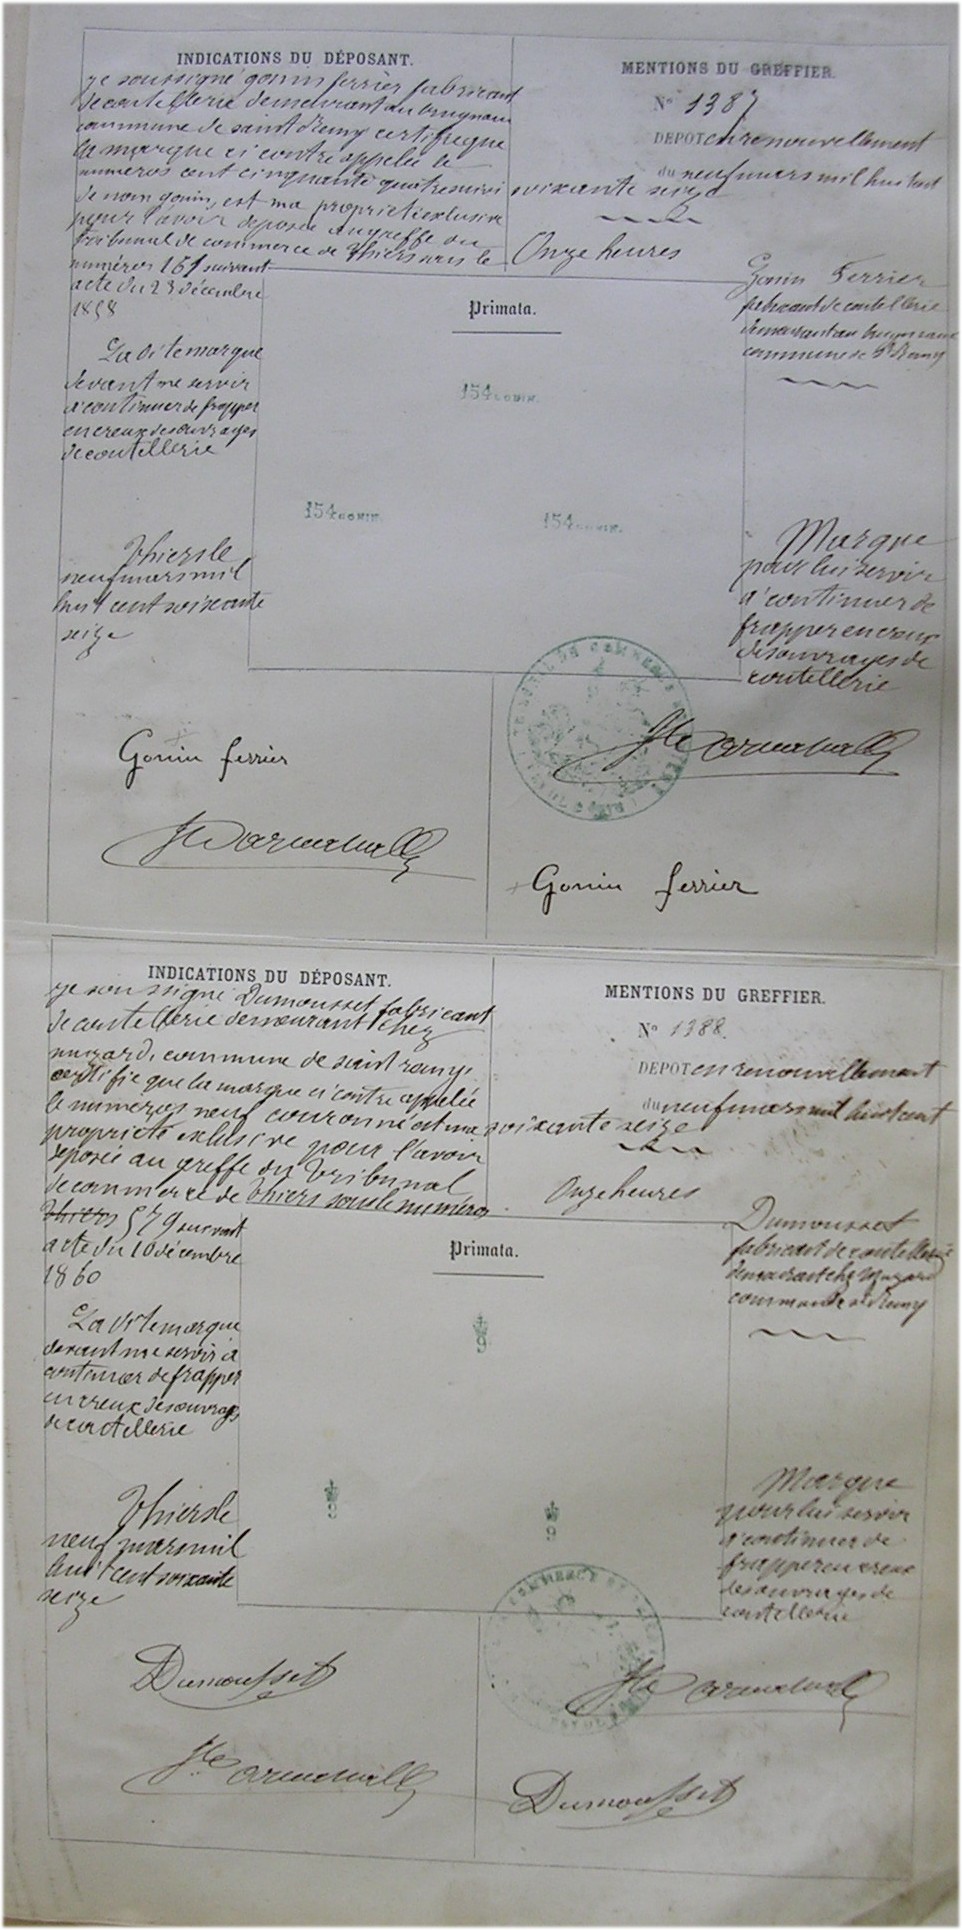 INDICATIONS DU DÉPOSANT.
je soussigné gonin ferrier fabricant
de coutellerie demeurant au brugnaux
commune de saint Remy certifie que
la marque ci contre appelée le
numeros cent cinquante quatre suivi
de nom gonin, est ma proprieté exclusive
pour l'avoir deposée au greffe du
tribunal de commerce de Thiers sous le
numéros 151 suivant
acte du 23 décembre
1858
La dite marque
devant me servir
a continuer de frapper
en creux des ouvrages
de coutellerie
Thiers le
neuf mars mil
huit cent soixante
seize
Gonin ferrier
MENTIONS DU GREFFIER.
N° 1387
DEPOT en renouvellement
du neuf mars mil huit cent
soixante seize
Onze heures
Gonin Ferrier
fabricant de coutellerie
demeurant au brugnaux
commune de St Remy
Primata.
154 GONIN.
154 GONIN.
154 GONIN.
Marque
pour lui servir
a continuer de
frapper en creux
des ouvrages de
coutellerie
Gonin ferrier
INDICATIONS DU DÉPOSANT.
je soussigné Dumousset fabricant
de coutellerie demeurant chez
mozard, commune de saint remy,
certifie que la marque ci contre appelée
le numeros neuf couronné est ma
propriete exlusive pour l'avoir
deposée au greffe du tribunal
de commerce de Thiers sous le numéros
Thiers 579 suivant
acte du 10 décembre
1860
La dite marque
devant me servir a
continuer de frapper
en creux des ouvrages
de coutellerie
Thiers le
neuf mars mil
huit cent soixante
seize
Dumousset
MENTIONS DU GREFFIER.
N° 1388.
DEPOT en renouvellement
du neuf mars mil huit cent
soixante seize
Onze heures
Dumousset
fabricant de coutellerie
demeurant chez Mozard
commune de St Remy
Primata.
9
9
9
Marque
pour lui servir
a continuer de
frapper en creux
des ouvrages de
coutellerie
Dumousset